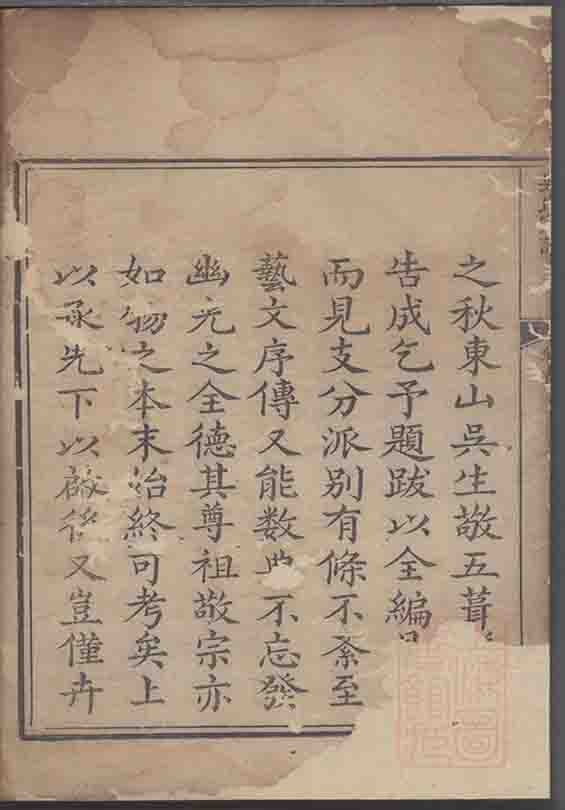 之秋東山吳生敬五葺
告成乞予題跋以全編
而見支分派別有條不紊至
藝文序傳又能数典不忘發
幽光之全德其尊祖敬宗亦
如物之本末始終可考矣上
以承先下以啟後又豈僅卉